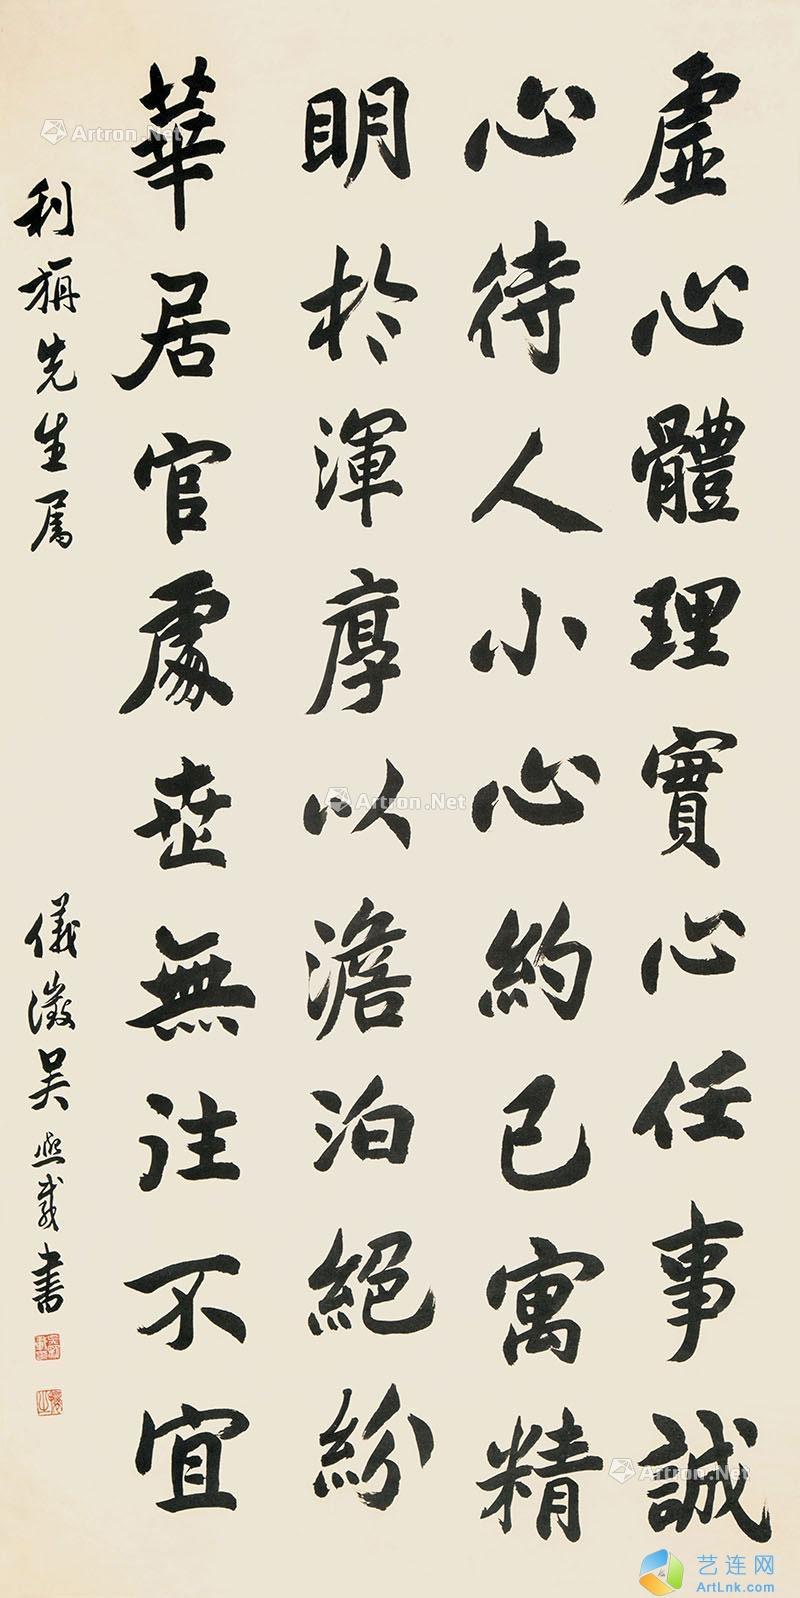 虛心體理實心任事誠
心待人小心約已寓精
明於渾厚以澹泊絕紛
華居官處世無往不宜
利旃先生属
儀徵吴熙載書
Artron.Net
Artron.Net
Artron.Net
艺连网
ArtLnk.com